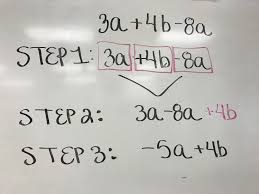 3a+4b-8a
STEP 1: 3a +4b -8a
STEP 2: 3a-8a +4b
STEP 3: -5a+4b